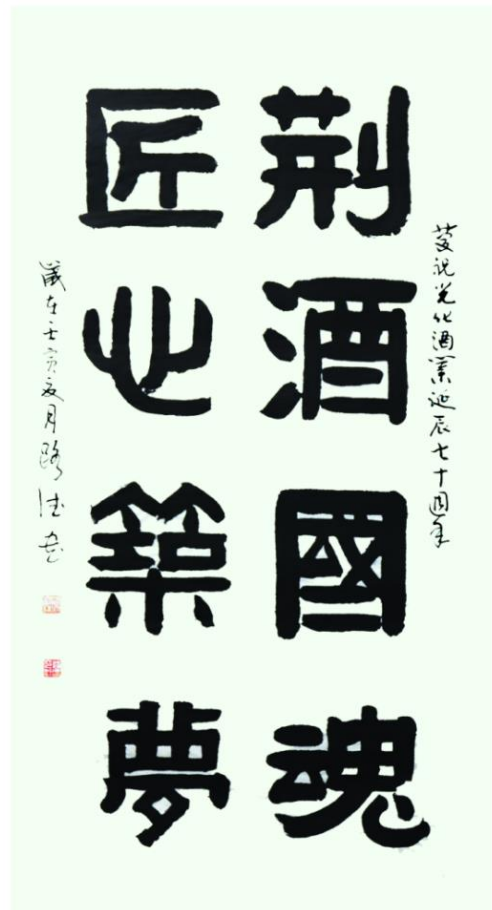 慶祝光化酒業誕辰七十週年
荆酒國魂
匠心築夢
歲在壬寅夏月路法書